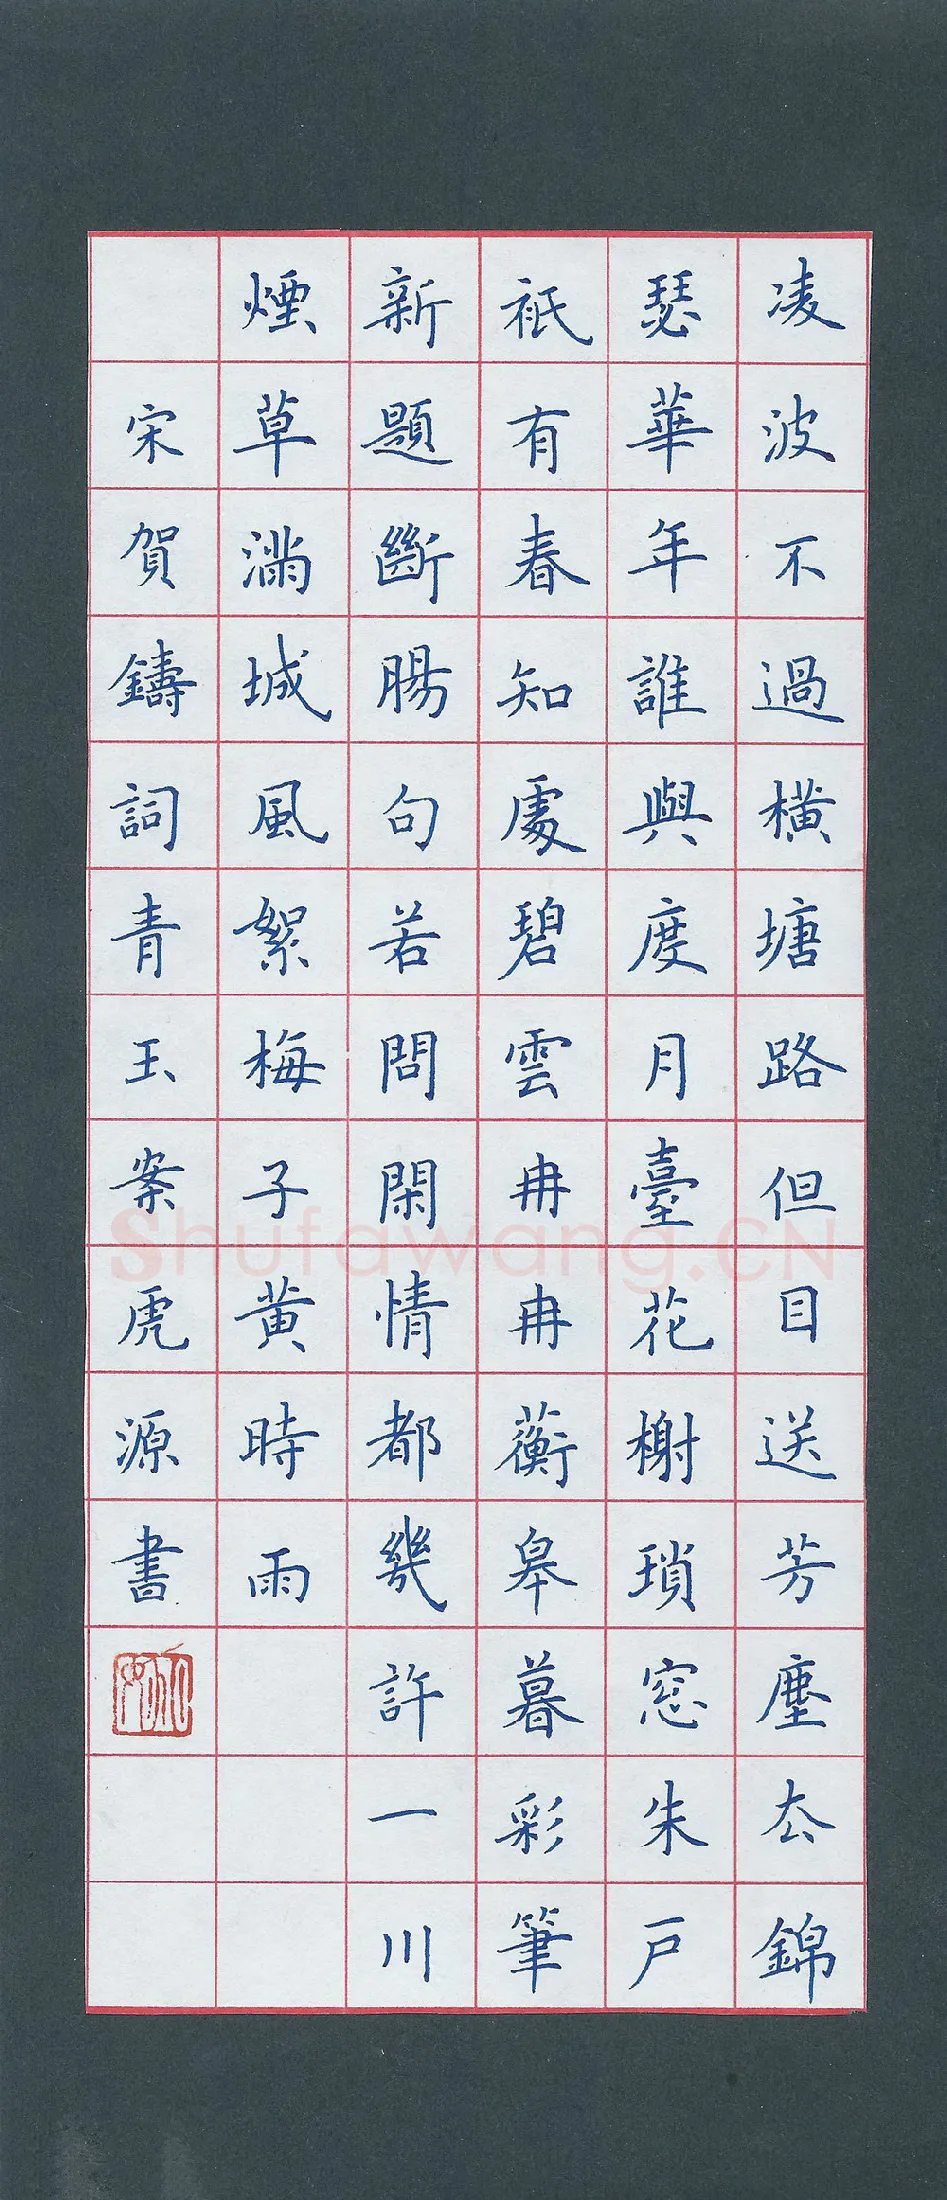 凌波不過横塘路但目送芳塵厺錦
瑟華年誰與度月臺花榭瑣窓朱户
祇有春知處碧雲冉冉蘅皋暮彩筆
新題斷腸句若問閑情都幾許一川
煙草滿城風絮梅子黄時雨
宋賀鑄詞青玉案虎源書
Shufawang.CN